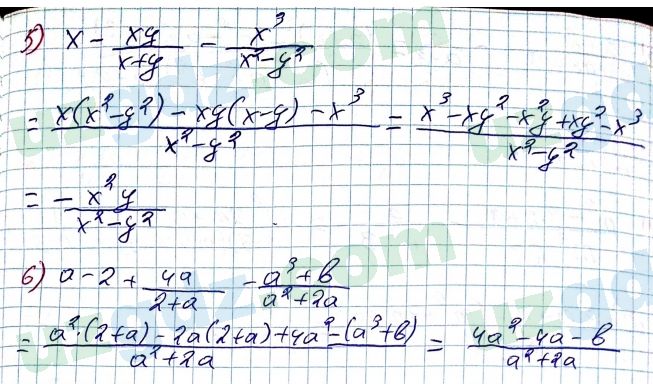 5) x - xy/(x+y) - x³/(x²-y²)
= (x(x²-y²) - xy(x-y) - x³)/(x²-y²) = (x³-xy²-x²y+xy²-x³)/(x²-y²)
= -x²y/(x²-y²)
6) a-2+4a/(2+a) - (a³+b)/(a²+2a)
= (a²·(2+a)-2a(2+a)+4a²-(a³+b))/(a²+2a) = (4a²-4a-b)/(a²+2a)